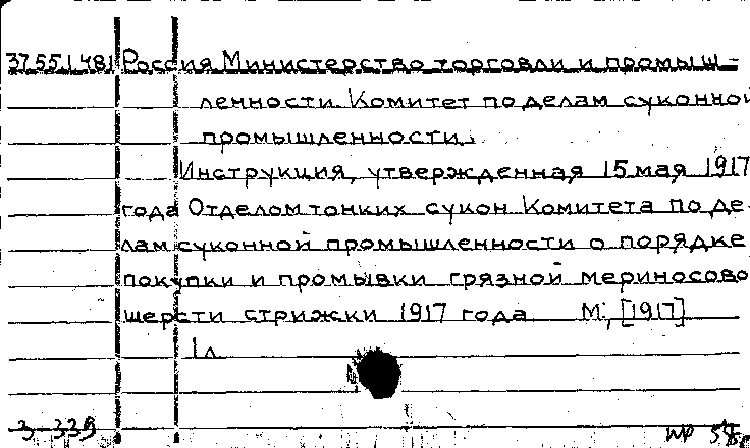 37.55.1.481 Россия Министерство торговли и промыш-
ленности. Комитет по делам суконной
промышленности.
Инструкция, утвержденная 15 мая 1917
года Отделом тонких сукон Комитета по де-
лам суконной промышленности о порядке
покупки и промывки грязной мериносово
шерсти стрижки 1917 года М., [1917]
1л
3-339